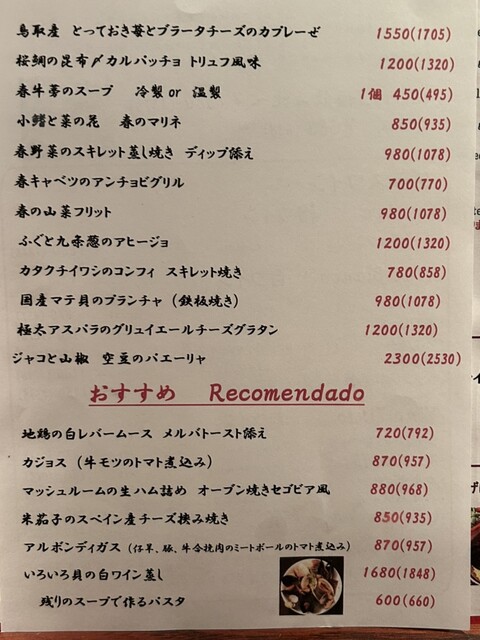 鳥取産 とっておき苺とブラータチーズのカプレーゼ 1550(1705)
桜鯛の昆布〆カルパッチョ トリュフ風味 1200(1320)
春牛蒡のスープ 冷製 or 温製 1個 450(495)
小鰭と菜の花 春のマリネ 850(935)
春野菜のスキレット蒸し焼き ディップ添え 980(1078)
春キャベツのアンチョビグリル 700(770)
春の山菜フリット 980(1078)
ふぐと九条葱のアヒージョ 1200(1320)
カタクチイワシのコンフィ スキレット焼き 780(858)
国産マテ貝のプランチャ (鉄板焼き) 980(1078)
極太アスパラのグリュイエールチーズグラタン 1200(1320)
ジャコと山椒 空豆のパエーリャ 2300(2530)
おすすめ Recomendado
地鶏の白レバームース メルバトースト添え 720(792)
カジョス (牛モツのトマト煮込み) 870(957)
マッシュルームの生ハム詰め オーブン焼きセゴビア風 880(968)
米茄子のスペイン産チーズ挟み焼き 850(935)
アルボンディガス (仔羊、豚、牛合挽肉のミートボールのトマト煮込み) 870(957)
いろいろ貝の白ワイン蒸し 1680(1848)
残りのスープで作るパスタ 600(660)